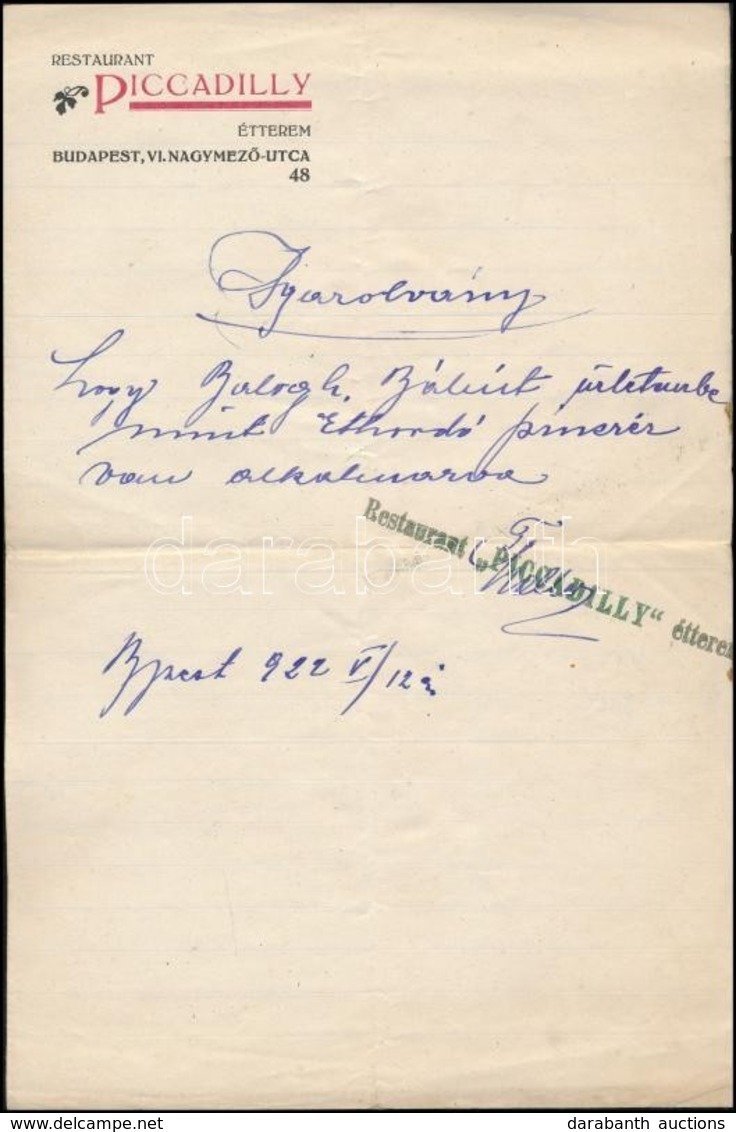 RESTAURANT
PICCADILLY
ÉTTEREM
BUDAPEST, VI. NAGYMEZŐ-UTCA
48
Igazolvány
hogy Balogh Bálint üzletembe
mint Ethordó pincér
van alkalmazva
Restaurant „PICCADILLY“ étterem
darabanth
Bpest 922 V/12 én
www.delcampe.net
darabanth auctions